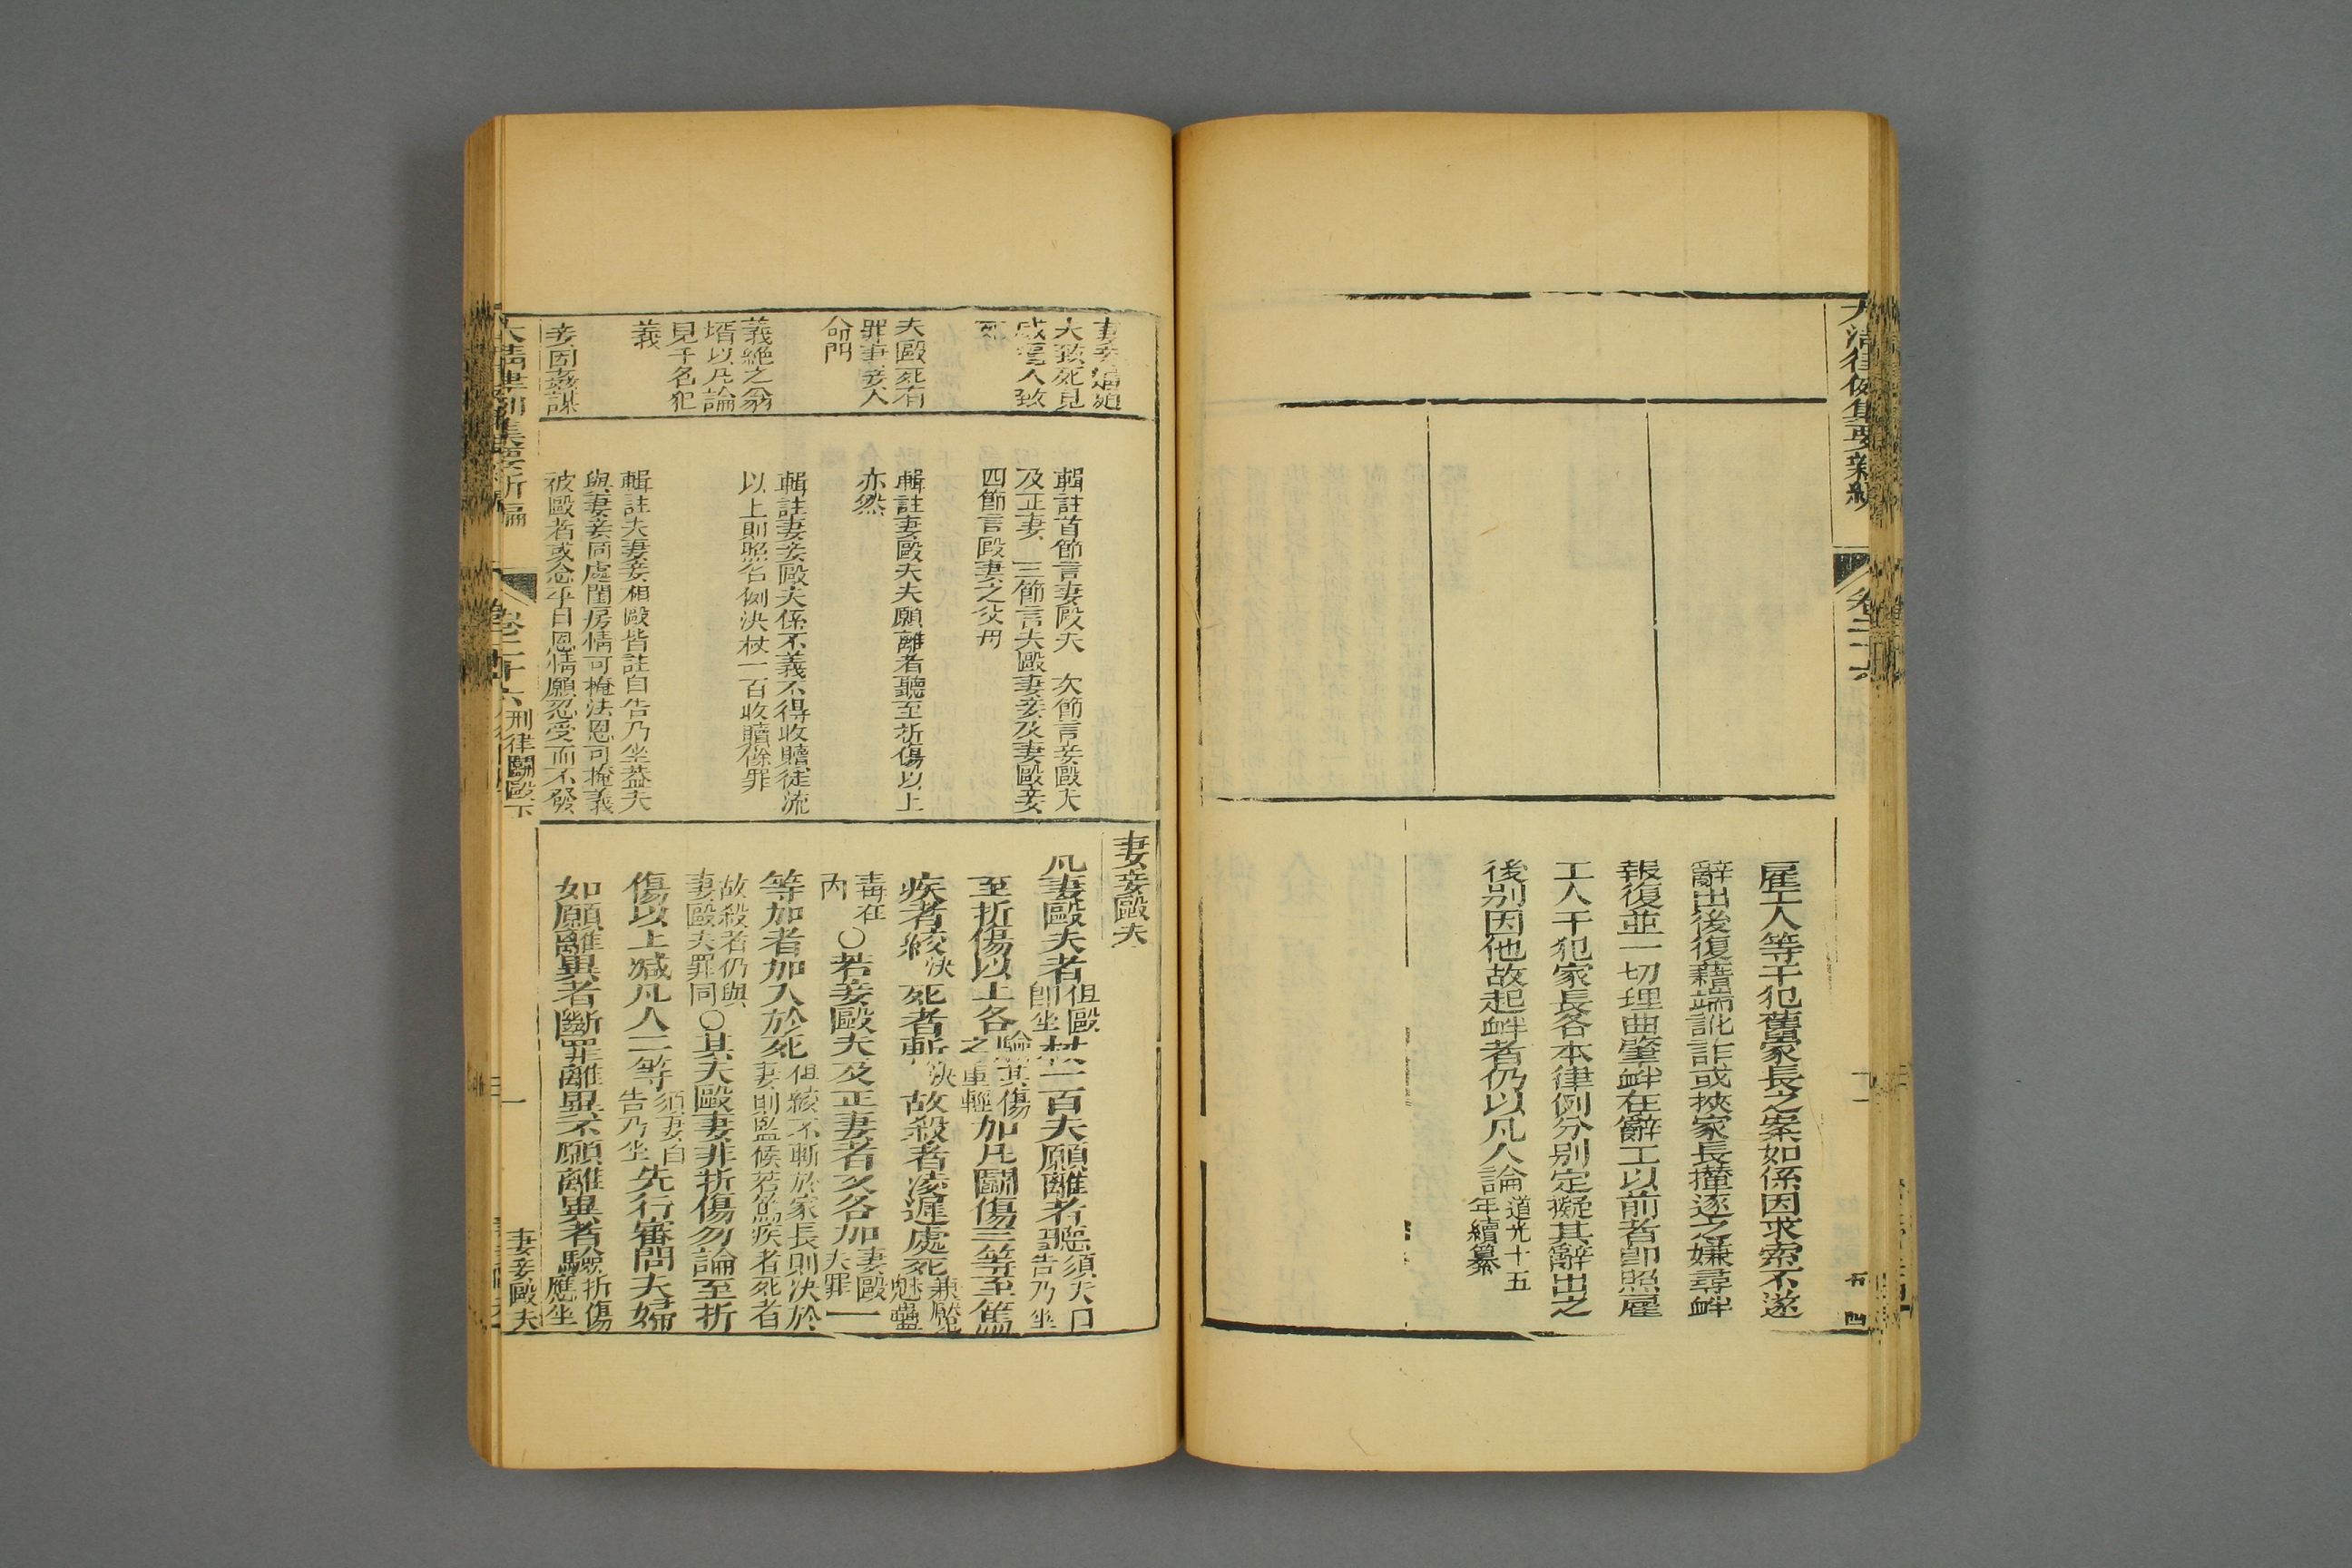 大清律例集要新編
卷二十六
雇工人等干犯舊家長之案如係因求索不遂
辭出後復藉端訛詐或挾家長攆逐之嫌尋衅
報復並一切理曲肇衅在辭工以前者卽照雇
工人干犯家長各本律例分别定擬其辭出之
後别因他故起衅者仍以凡人論道光十五
年續纂
夫致死見
威逼人致
死
夫毆死有
罪妻妾人
命門
義絶之翁
壻以凡論
見干名犯
義
妾因姦謀
輯註首節言妻毆夫 次節言妾毆夫
及正妻 三節言夫毆妻妾及妻毆妾
四節言毆妻之父母
輯註妻毆夫夫願離者聽至折傷以上
亦然
輯註妻妾毆夫係不義不得收贖徒流
以上則照名例決杖一百收贖餘罪
輯註夫妻妾相毆皆註自告乃坐葢夫
與妻妾同處閨房情可掩法恩可掩義
被毆者或念平日恩情願忍受而不發
妻妾毆夫
凡妻毆夫者但毆
卽坐杖一百夫願離者聽須夫自
告乃坐
至折傷以上各驗其傷
之重輕加凡鬬傷三等至篤
疾者絞決死者斬決故殺者凌遲處死兼魘魅蠱
毒在
内○若妾毆夫及正妻者又各加妻毆
夫罪一
等加者加入於死但絞不斬於家長則決於
妻則監候若篤疾者死者
故殺者仍與
妻毆夫罪同○其夫毆妻非折傷勿論至折
傷以上減凡人二等須妻自
告乃坐先行審問夫婦
如願離異者斷罪離異不願離異者驗折傷
應坐
大清律例集要新編
卷二十六
刑律鬬毆下
妻妾毆夫